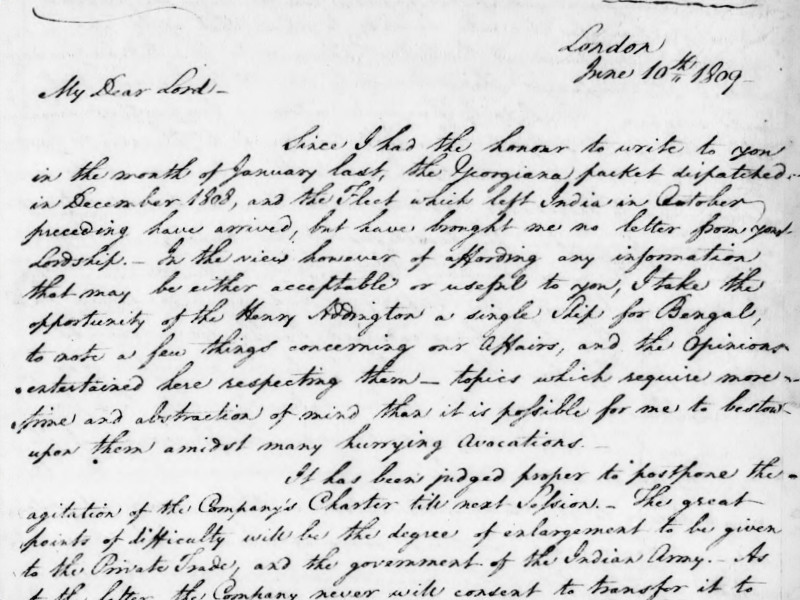 London
June 10th 1809
My Dear Lord –
Since I had the honour to write to you
in the month of January last, the Georgiana packet dispatched
in December 1808, and the Fleet which left India in October
preceding have arrived, but have brought me no letter from your
Lordship. – In the view however of affording any information
that may be either acceptable or useful to you, I take the
opportunity of the Henry Addington a single Ship for Bengal,
to note a few things concerning our Affairs, and the Opinions
entertained here respecting them – topics which require more
time and abstraction of mind than it is possible for me to bestow
upon them amidst many hurrying avocations. –
It has been judged proper to postpone the
agitation of the Company's Charter till next Session. – The great
points of difficulty will be the degree of enlargement to be given
to the Private Trade, and the government of the Indian Army. – As
to the latter, the Company never will consent to transfer it to